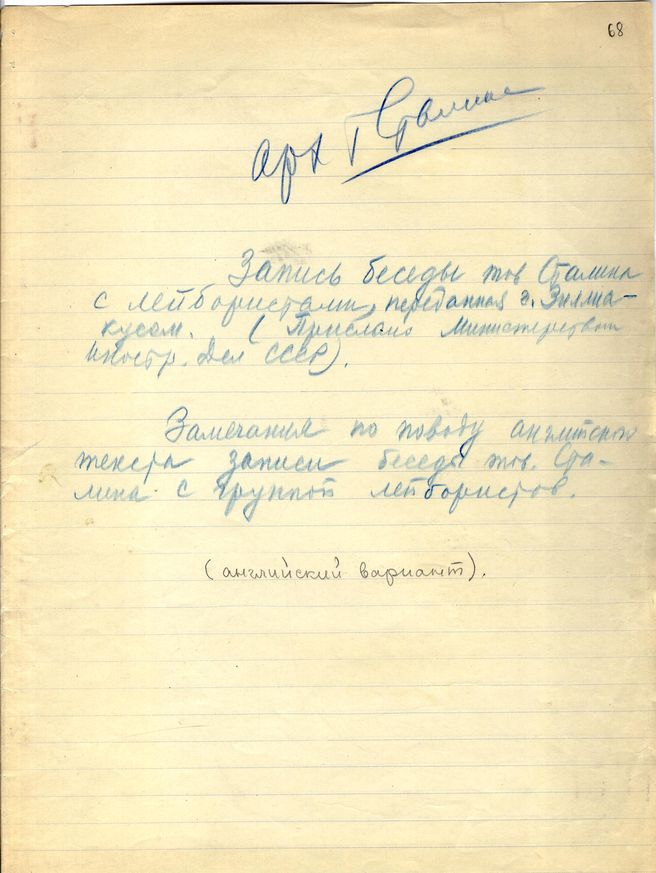 68
арх т Сталина
Запись беседы тов Сталина
с лейбористами, переданная г. Зиллиа-
кусом. (Прислано Министерством
Иностр. Дел СССР).
Замечания по поводу английского
текста записи беседы тов. Ста-
лина с группой лейбористов.
(английский вариант).